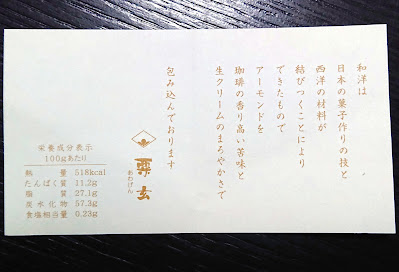 和洋は
日本の菓子作りの技と
西洋の材料が
結びつくことにより
できたもので
アーモンドを
珈琲の香り高い苦味と
生クリームのまろやかさで
包み込んでおります
あわげん
栄養成分表示
100gあたり
熱量 518kcal
たんぱく質 11.2g
脂質 27.1g
炭水化物 57.3g
食塩相当量 0.23g